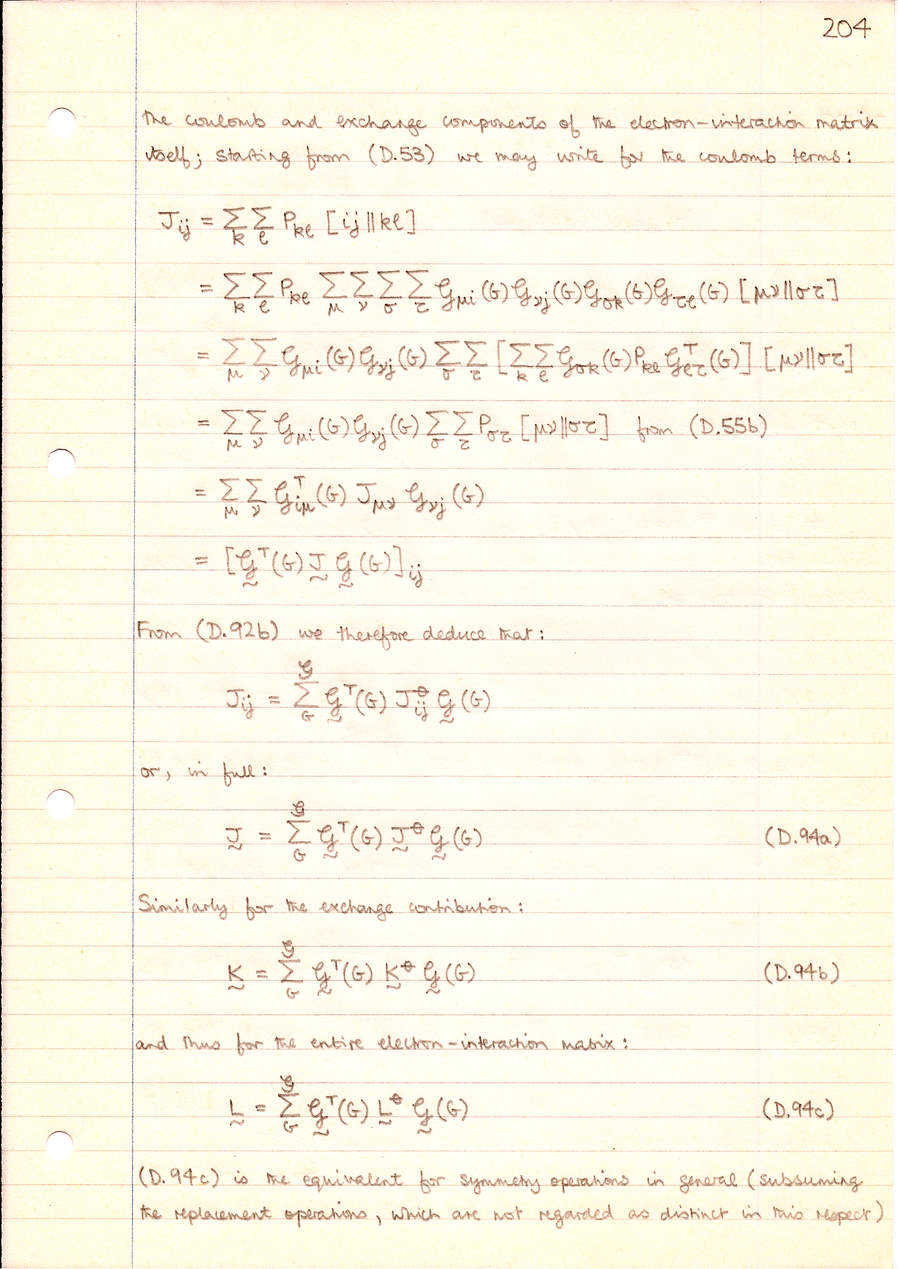 204
the coulomb and exchange components of the electron-interaction matrix
itself; starting from (D.53) we may write for the coulomb terms:
J_ij = ∑_k ∑_ℓ P_kℓ [ij||kℓ]
= ∑_k ∑_ℓ P_kℓ ∑_μ ∑_ν ∑_σ ∑_τ 𝒢_μi(G) 𝒢_νj(G) 𝒢_σk(G) 𝒢_τℓ(G) [μν||στ]
= ∑_μ ∑_ν 𝒢_μi(G) 𝒢_νj(G) ∑_σ ∑_τ [∑_k ∑_ℓ 𝒢_σk(G) P_kℓ 𝒢^T_ℓτ(G)] [μν||στ]
= ∑_μ ∑_ν 𝒢_μi(G) 𝒢_νj(G) ∑_σ ∑_τ P_στ [μν||στ] from (D.55b)
= ∑_μ ∑_ν 𝒢^T_iμ(G) J_μν 𝒢_νj(G)
= [𝒢^T(G) J 𝒢(G)]_ij
From (D.92b) we therefore deduce that:
J_ij = ∑_G^𝒢 𝒢^T(G) J^θ_ij 𝒢(G)
or, in full:
J = ∑_G^𝒢 𝒢^T(G) J^θ 𝒢(G) (D.94a)
Similarly for the exchange contribution:
K = ∑_G^𝒢 𝒢^T(G) K^θ 𝒢(G) (D.94b)
and thus for the entire electron-interaction matrix:
L = ∑_G^𝒢 𝒢^T(G) L^θ 𝒢(G) (D.94c)
(D.94c) is the equivalent for symmetry operations in general (subsuming
the replacement operations, which are not regarded as distinct in this respect)